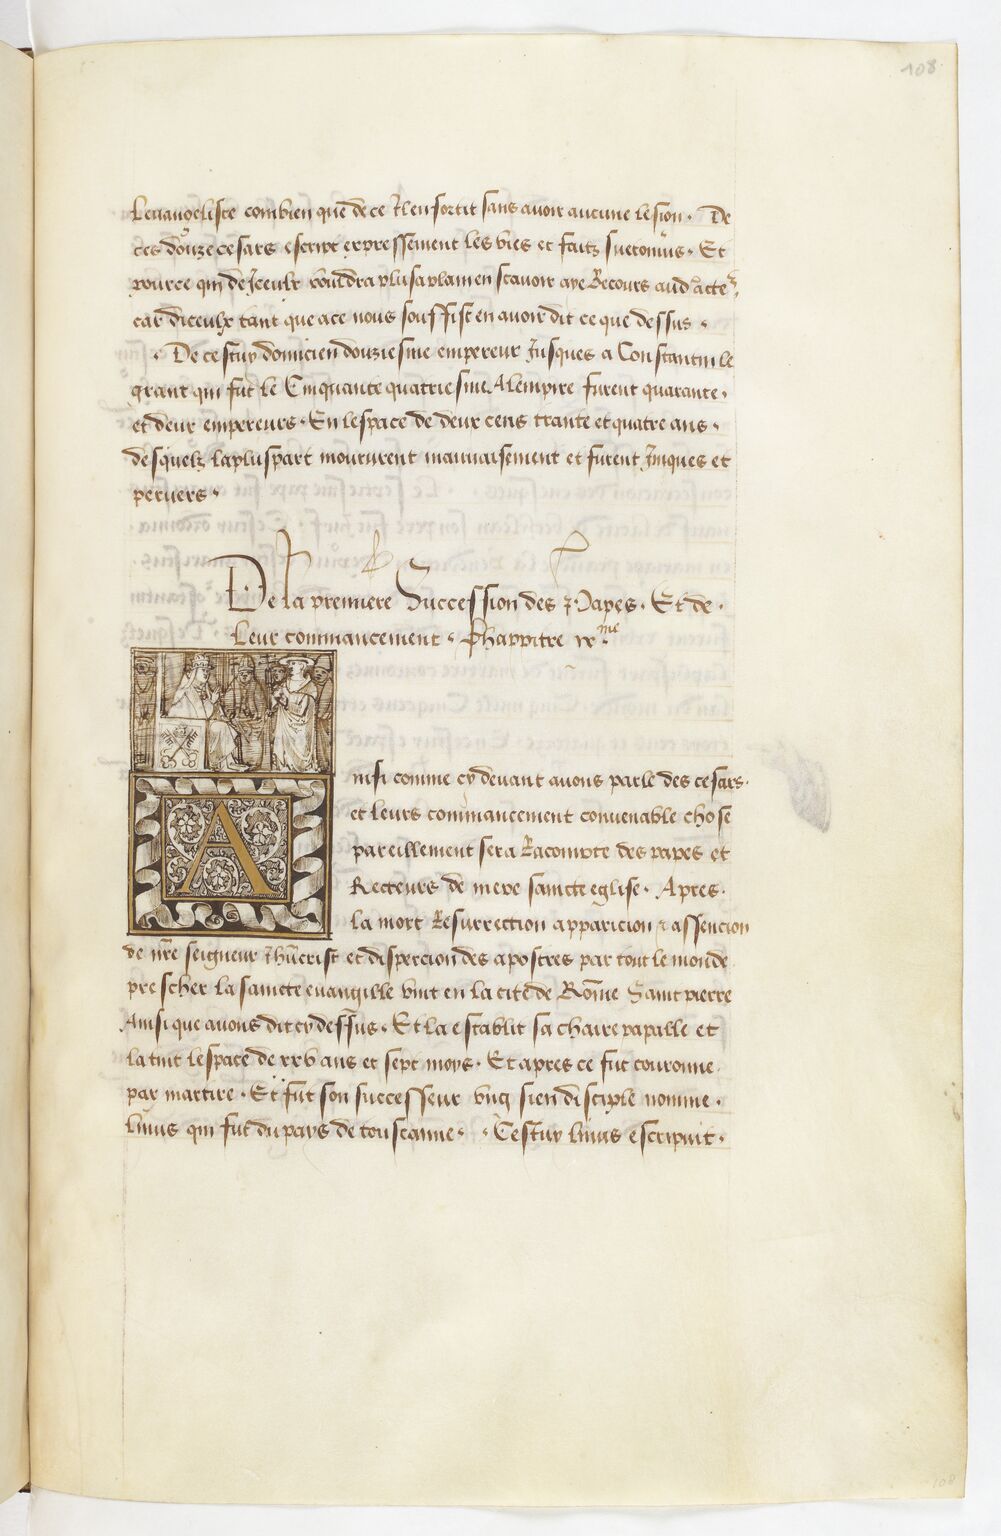 108
Levangeliste combien que de ce Il en sortit sans avoir aucune lesion. De
ces douze cesars escript expressement les vies et faitz suetonius. Et
pource qui de Iceulx vouldra plus a plain en scavoir aye Recours aud. acteur,
car diceulx tant que a ce nous souffist en avoir dit ce que dessus.
De cestuy domicien douziesme empereur Jusques a Constantin le
grant qui fut le Cinquante quatriesme A lempire furent quarante
et deux empereurs. En lespace de deux cens trante et quatre ans.
desquelz la pluspart moururent mauvaisement et furent Iniques et
pervers.
De la premiere Succession des Papes. Et de
Leur commancement. Chappitre ixme
Ainsi comme cy devant avons parle des cesars.
et leurs commancement convenable chose
pareillement sera Racompte des papes et
Recteurs de mere saincte eglise. Apres.
la mort Resurrection apparicion & assencion
de nre seigneur Ihucrist et dispercion des apostres par tout le monde
prescher la saincte euangible vint en la cite de Romme Saint pierre
Ainsi que avons dit cy dessus. Et la establit sa chaire papalle et
la tint lespace de xxv ans et sept moys. Et apres ce fut couronne
par martire. Et fut son successeur ung sien disciple nomme.
linus qui fut du pays de touscanne. Cestuy linus escripuit.
108